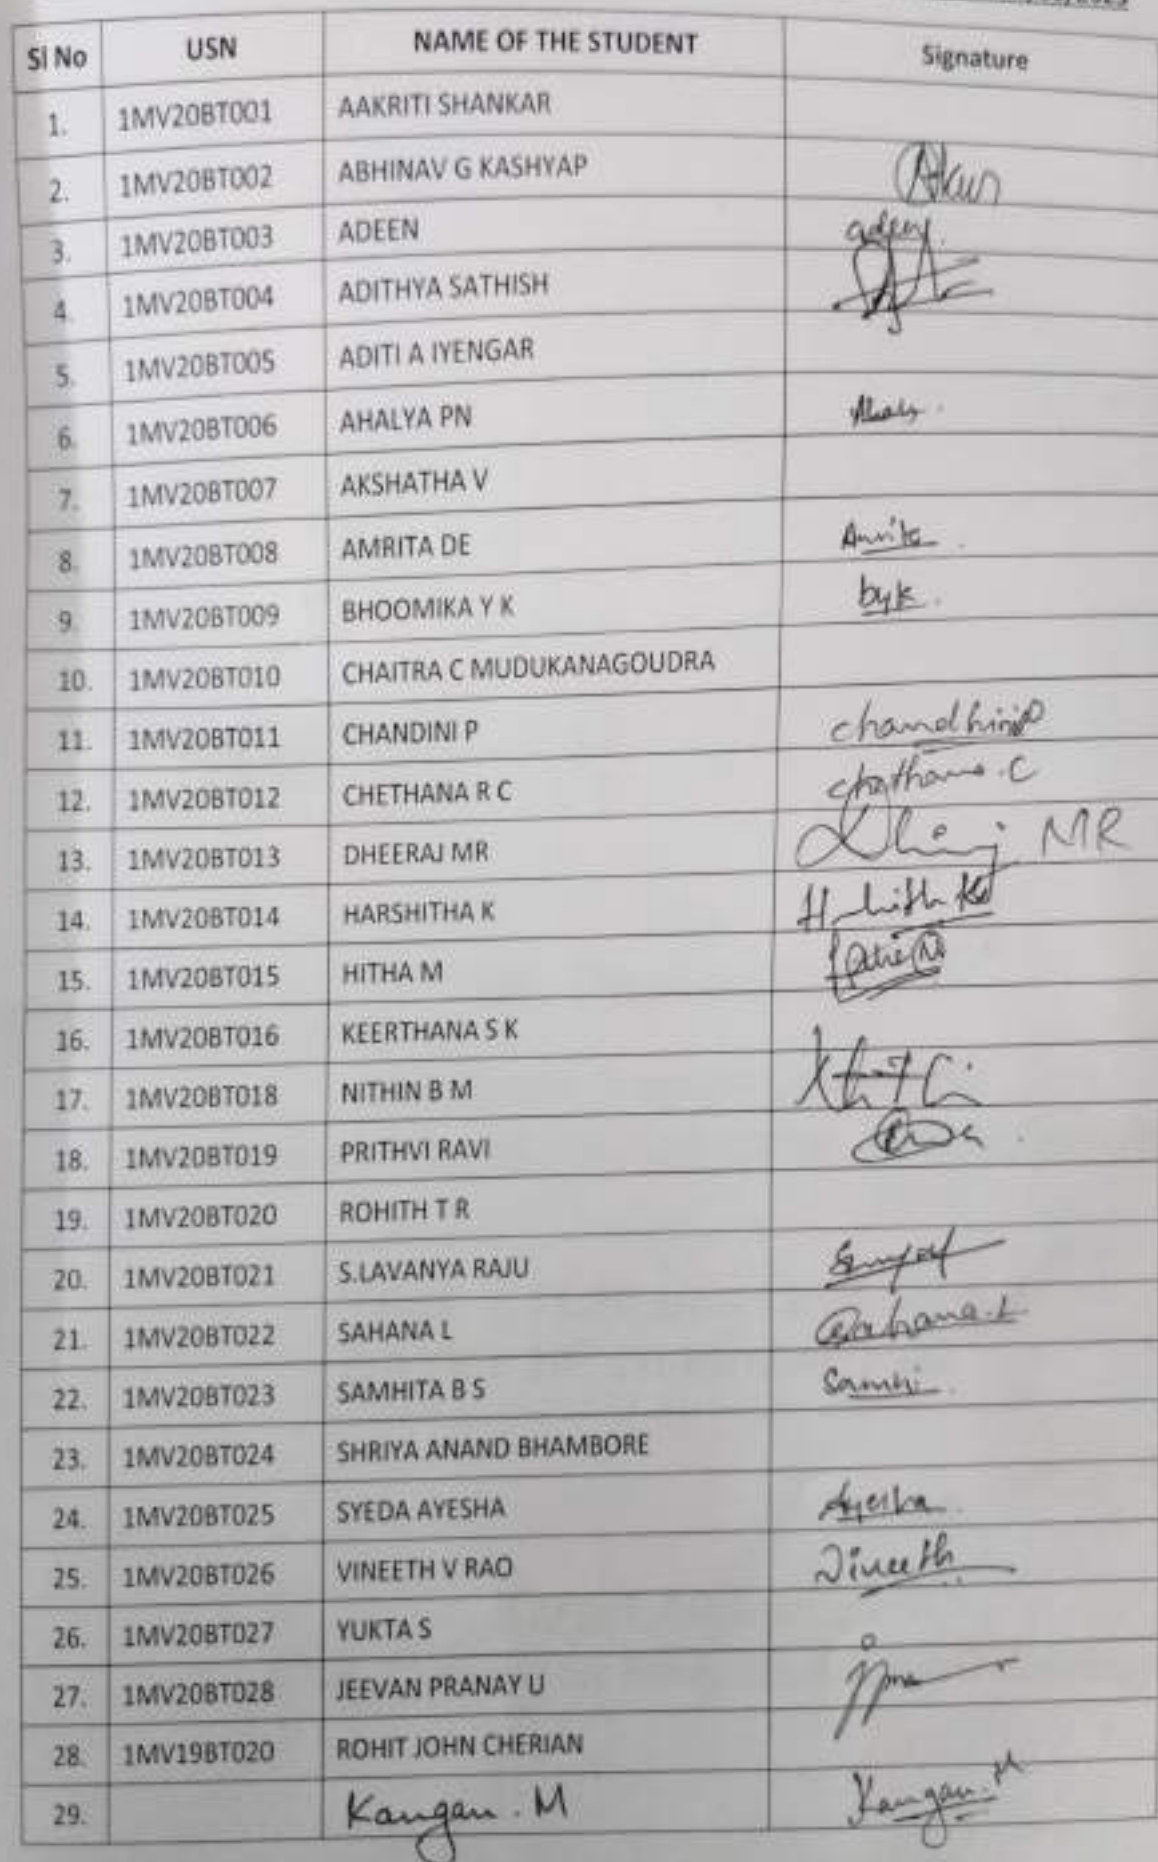 Sl No USN NAME OF THE STUDENT Signature
1. 1MV20BT001 AAKRITI SHANKAR
2. 1MV20BT002 ABHINAV G KASHYAP
3. 1MV20BT003 ADEEN adeen
4. 1MV20BT004 ADITHYA SATHISH
5. 1MV20BT005 ADITI A IYENGAR
6. 1MV20BT006 AHALYA PN
7. 1MV20BT007 AKSHATHA V
8. 1MV20BT008 AMRITA DE Amrita
9. 1MV20BT009 BHOOMIKA Y K byk.
10. 1MV20BT010 CHAITRA C MUDUKANAGOUDRA
11. 1MV20BT011 CHANDINI P chandhini P
12. 1MV20BT012 CHETHANA R C chethana.C
13. 1MV20BT013 DHEERAJ MR Dhiraj MR
14. 1MV20BT014 HARSHITHA K
15. 1MV20BT015 HITHA M
16. 1MV20BT016 KEERTHANA S K
17. 1MV20BT018 NITHIN B M
18. 1MV20BT019 PRITHVI RAVI
19. 1MV20BT020 ROHITH T R
20. 1MV20BT021 S.LAVANYA RAJU
21. 1MV20BT022 SAHANA L Sahana.L
22. 1MV20BT023 SAMHITA B S Samhi
23. 1MV20BT024 SHRIYA ANAND BHAMBORE
24. 1MV20BT025 SYEDA AYESHA Ayesha
25. 1MV20BT026 VINEETH V RAO Vineeth
26. 1MV20BT027 YUKTA S
27. 1MV20BT028 JEEVAN PRANAY U
28. 1MV19BT020 ROHIT JOHN CHERIAN
29. Kangan.M Kangan.M